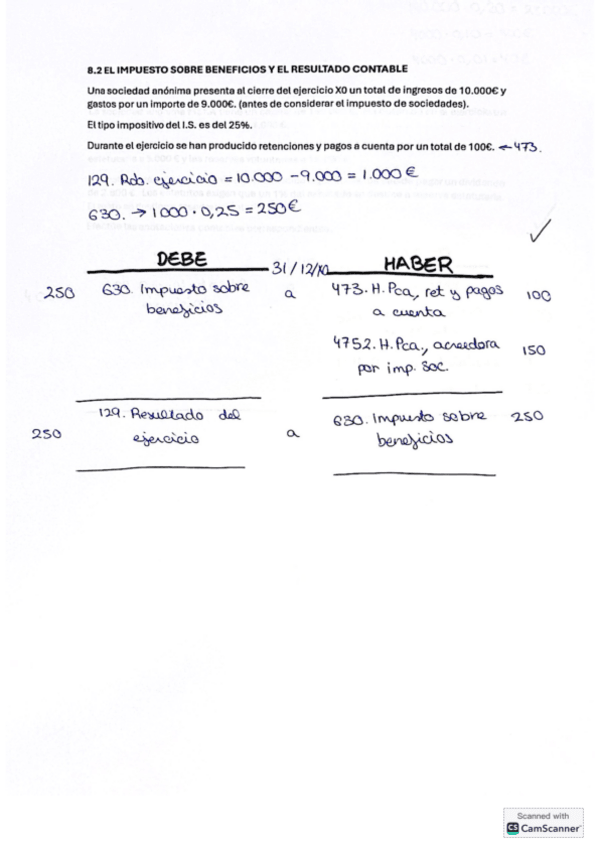 8.2 EL IMPUESTO SOBRE BENEFICIOS Y EL RESULTADO CONTABLE
Una sociedad anónima presenta al cierre del ejercicio X0 un total de ingresos de 10.000€ y
gastos por un importe de 9.000€. (antes de considerar el impuesto de sociedades).
El tipo impositivo del I.S. es del 25%.
Durante el ejercicio se han producido retenciones y pagos a cuenta por un total de 100€. ← 473.
129. Rdo. ejercicio = 10.000 - 9.000 = 1.000 €
630. → 1000 · 0,25 = 250€
DEBE 31/12/X0 HABER
250 630. Impuesto sobre a 473. H. Pca, ret y pagos 100
beneficios a cuenta
4752. H. Pca., acreedora 150
por imp. Soc.
129. Resultado del 630. Impuesto sobre 250
250 ejercicio a beneficios
Scanned with
CS CamScanner